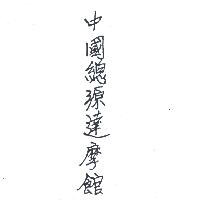 中國總源達摩館